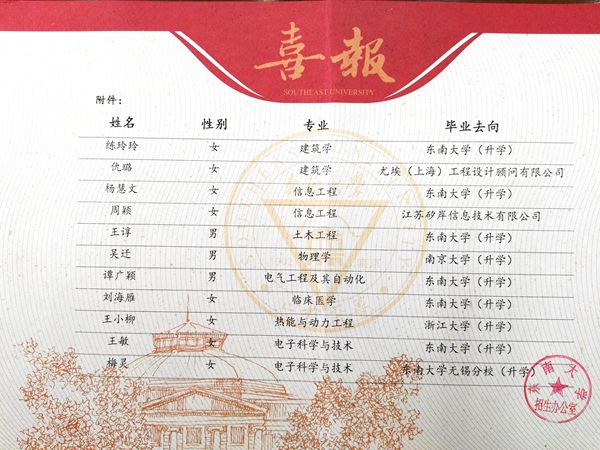 喜報
SOUTHEAST UNIVERSITY
附件：
姓名 性别 专业 毕业去向
练玲玲 女 建筑学 东南大学（升学）
仇璐 女 建筑学 尤埃（上海）工程设计顾问有限公司
杨慧文 女 信息工程 东南大学（升学）
周颖 女 信息工程 江苏矽岸信息技术有限公司
王谆 男 土木工程 东南大学（升学）
吴迁 男 物理学 南京大学（升学）
谭广颖 男 电气工程及其自动化 东南大学（升学）
刘海雁 女 临床医学 东南大学（升学）
王小柳 女 热能与动力工程 浙江大学（升学）
王敏 女 电子科学与技术 东南大学（升学）
梅灵 女 电子科学与技术 东南大学无锡分校（升学）
东南大学
招生办公室